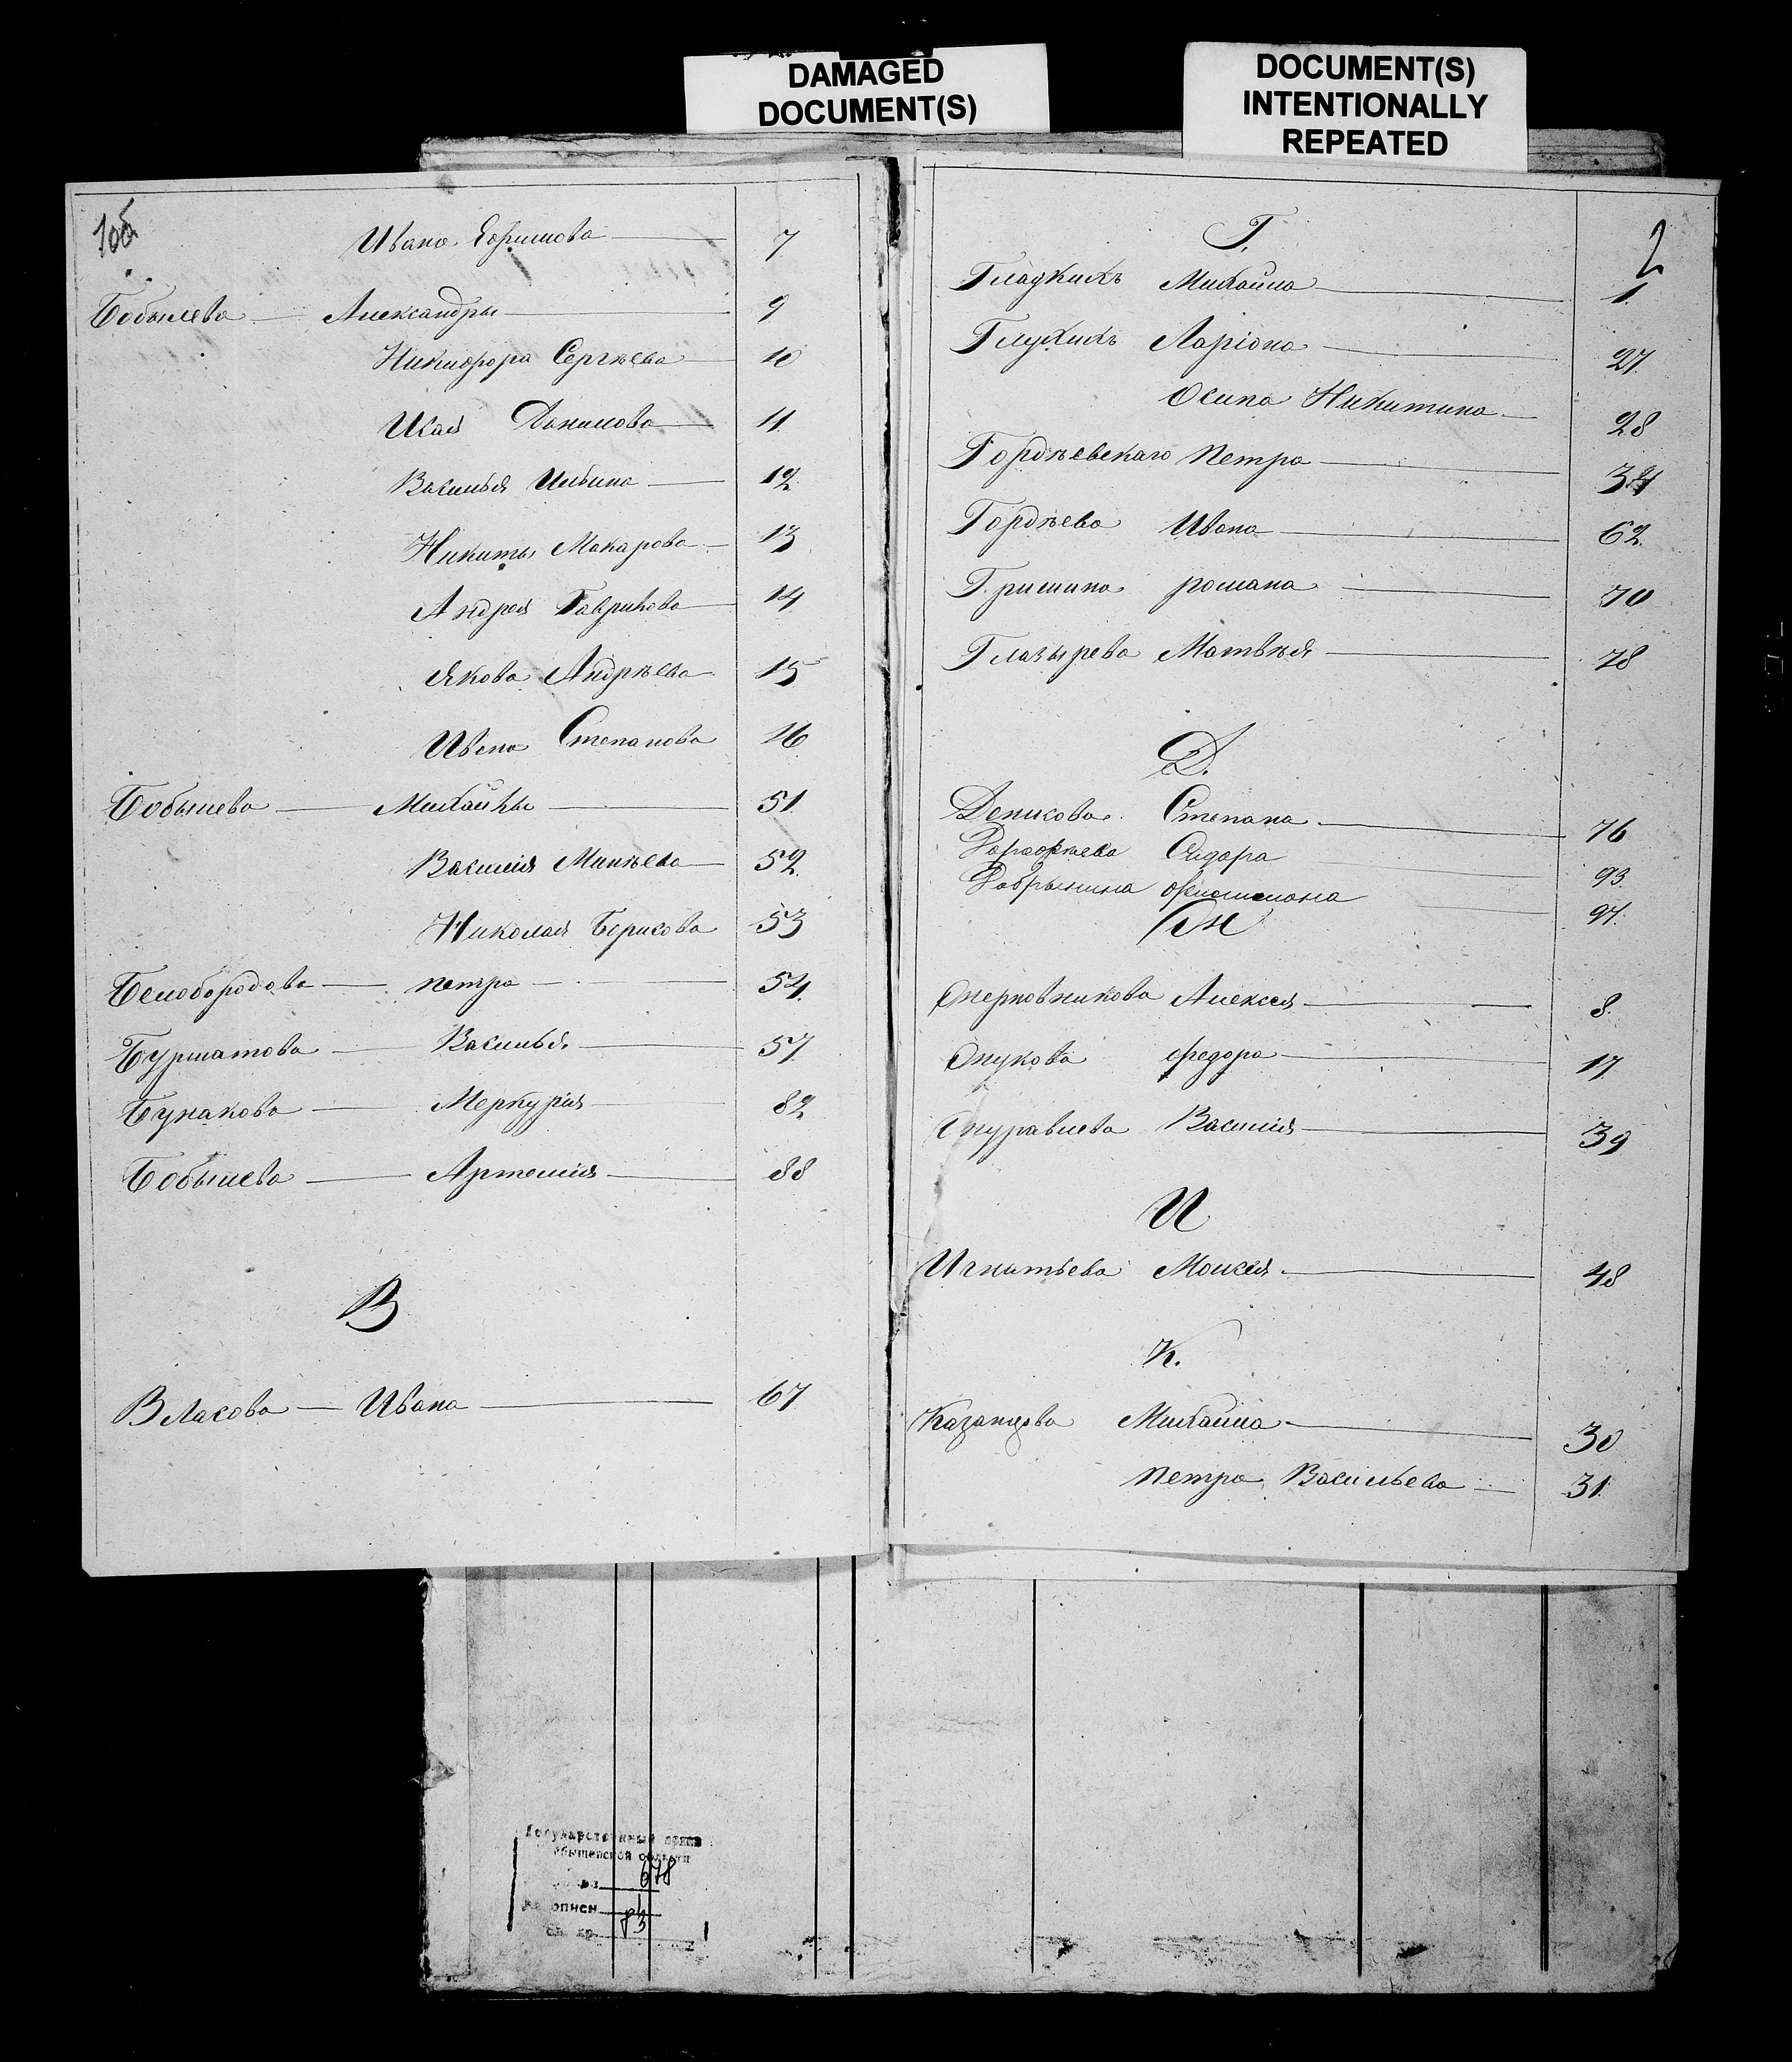 DAMAGED
DOCUMENT(S)
DOCUMENT(S)
INTENTIONALLY
REPEATED
1об
Ивана Ефимова 7
Бобылева Александры 9
Никифора Сергѣева 10
Исая Данилова 11
Василья Ильина 12
Никиты Макарова 13
Андрея Гаврилова 14
Якова Андрѣева 15
Ивана Степанова 16
Бобылева Михайлы 51
Василія Минѣева 52
Николая Борисова 53
Белобородова петра 54
Бурматова Василья 57
Бунакова Меркурія 82
Бобылева Артемія 88
В
Власова Ивана 67
2
Г.
Гладкихъ Михайла 1.
Глухихъ Ларіона 27.
Осипа Никитина 28
Гордѣевскаго петра 34
Гордѣева Ивана 62.
Гришина романа 70
Глазырева Матвѣя 78
Д.
Денисова Степана 76
Сидора 93.
Добрынина филимона 97.
Ж
Жерновникова Алексея 8.
Жукова федора 17
Журавлева Василія 39
И
Игнатьева Моисея 48
К.
Казанцова Михайла 30
петра Васильева 31.
Государственный архив
области
678
описи
83